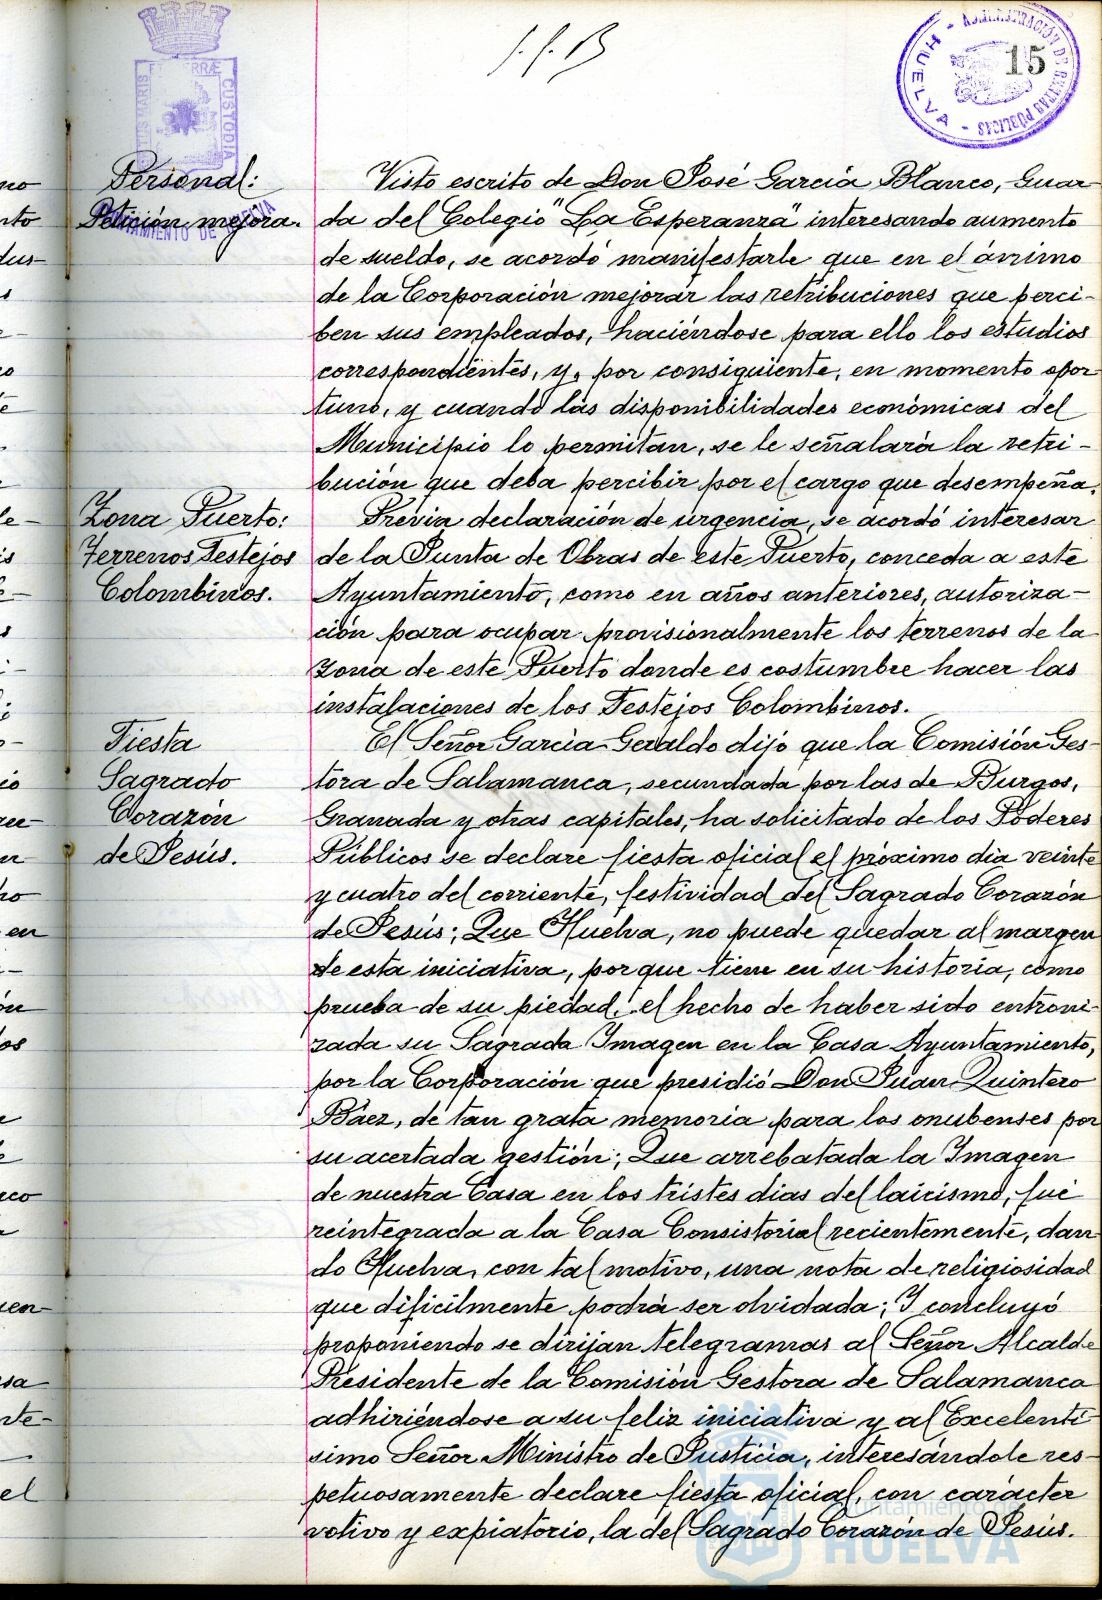 15
ADMINISTRACIÓN DE RENTAS PÚBLICAS
HUELVA
CUSTODIA
AYUNTAMIENTO DE HUELVA
Personal:
Petición mejora.
Visto escrito de Don José García Blanco, Guar-
da del Colegio "La Esperanza" interesando aumento
de sueldo, se acordó manifestarle que en el ánimo
de la Corporación mejorar las retribuciones que perci-
ben sus empleados, haciéndose para ello los estudios
correspondientes, y, por consiguiente, en momento opor
tuno, y cuando las disponibilidades económicas del
Municipio lo permitan, se le señalará la retri-
bución que deba percibir por el cargo que desempeña.
Zona Puerto:
Terrenos Festejos
Colombinos.
Previa declaración de urgencia, se acordó interesar
de la Junta de Obras de este Puerto, conceda a este
Ayuntamiento, como en años anteriores, autoriza-
ción para ocupar provisionalmente los terrenos de la
zona de este Puerto donde es costumbre hacer las
instalaciones de los Festejos Colombinos.
Fiesta
Sagrado
Corazón
de Jesús.
El Señor García Geraldo dijo que la Comisión Ges-
tora de Salamanca, secundada por las de Burgos,
Granada y otras capitales, ha solicitado de los Poderes
Públicos se declare fiesta oficial el próximo dia veinte
y cuatro del corriente, festividad del Sagrado Corazón
de Jesús; Que Huelva, no puede quedar al margen
de esta iniciativa, porque tiene en su historia, como
prueba de su piedad, el hecho de haber sido entroni-
zada su Sagrada Imagen en la Casa Ayuntamiento,
por la Corporación que presidió Don Juan Quintero
Báez, de tan grata memoria para los onubenses por
su acertada gestión; Que arrebatada la Imagen
de nuestra Casa en los tristes dias del laicismo, fué
reintegrada a la Casa Consistorial recientemente, dan
do Huelva, con tal motivo, una nota de religiosidad
que dificilmente podrá ser olvidada; Y concluyó
proponiendo se dirijan telegramas al Señor Alcalde
Presidente de la Comisión Gestora de Salamanca
adhiriéndose a su feliz iniciativa y al Excelentí
simo Señor Ministro de Justicia, interesándole res-
petuosamente declare fiesta oficial, con carácter
votivo y expiatorio, la del Sagrado Corazón de Jesús.
Ayuntamiento de
HUELVA